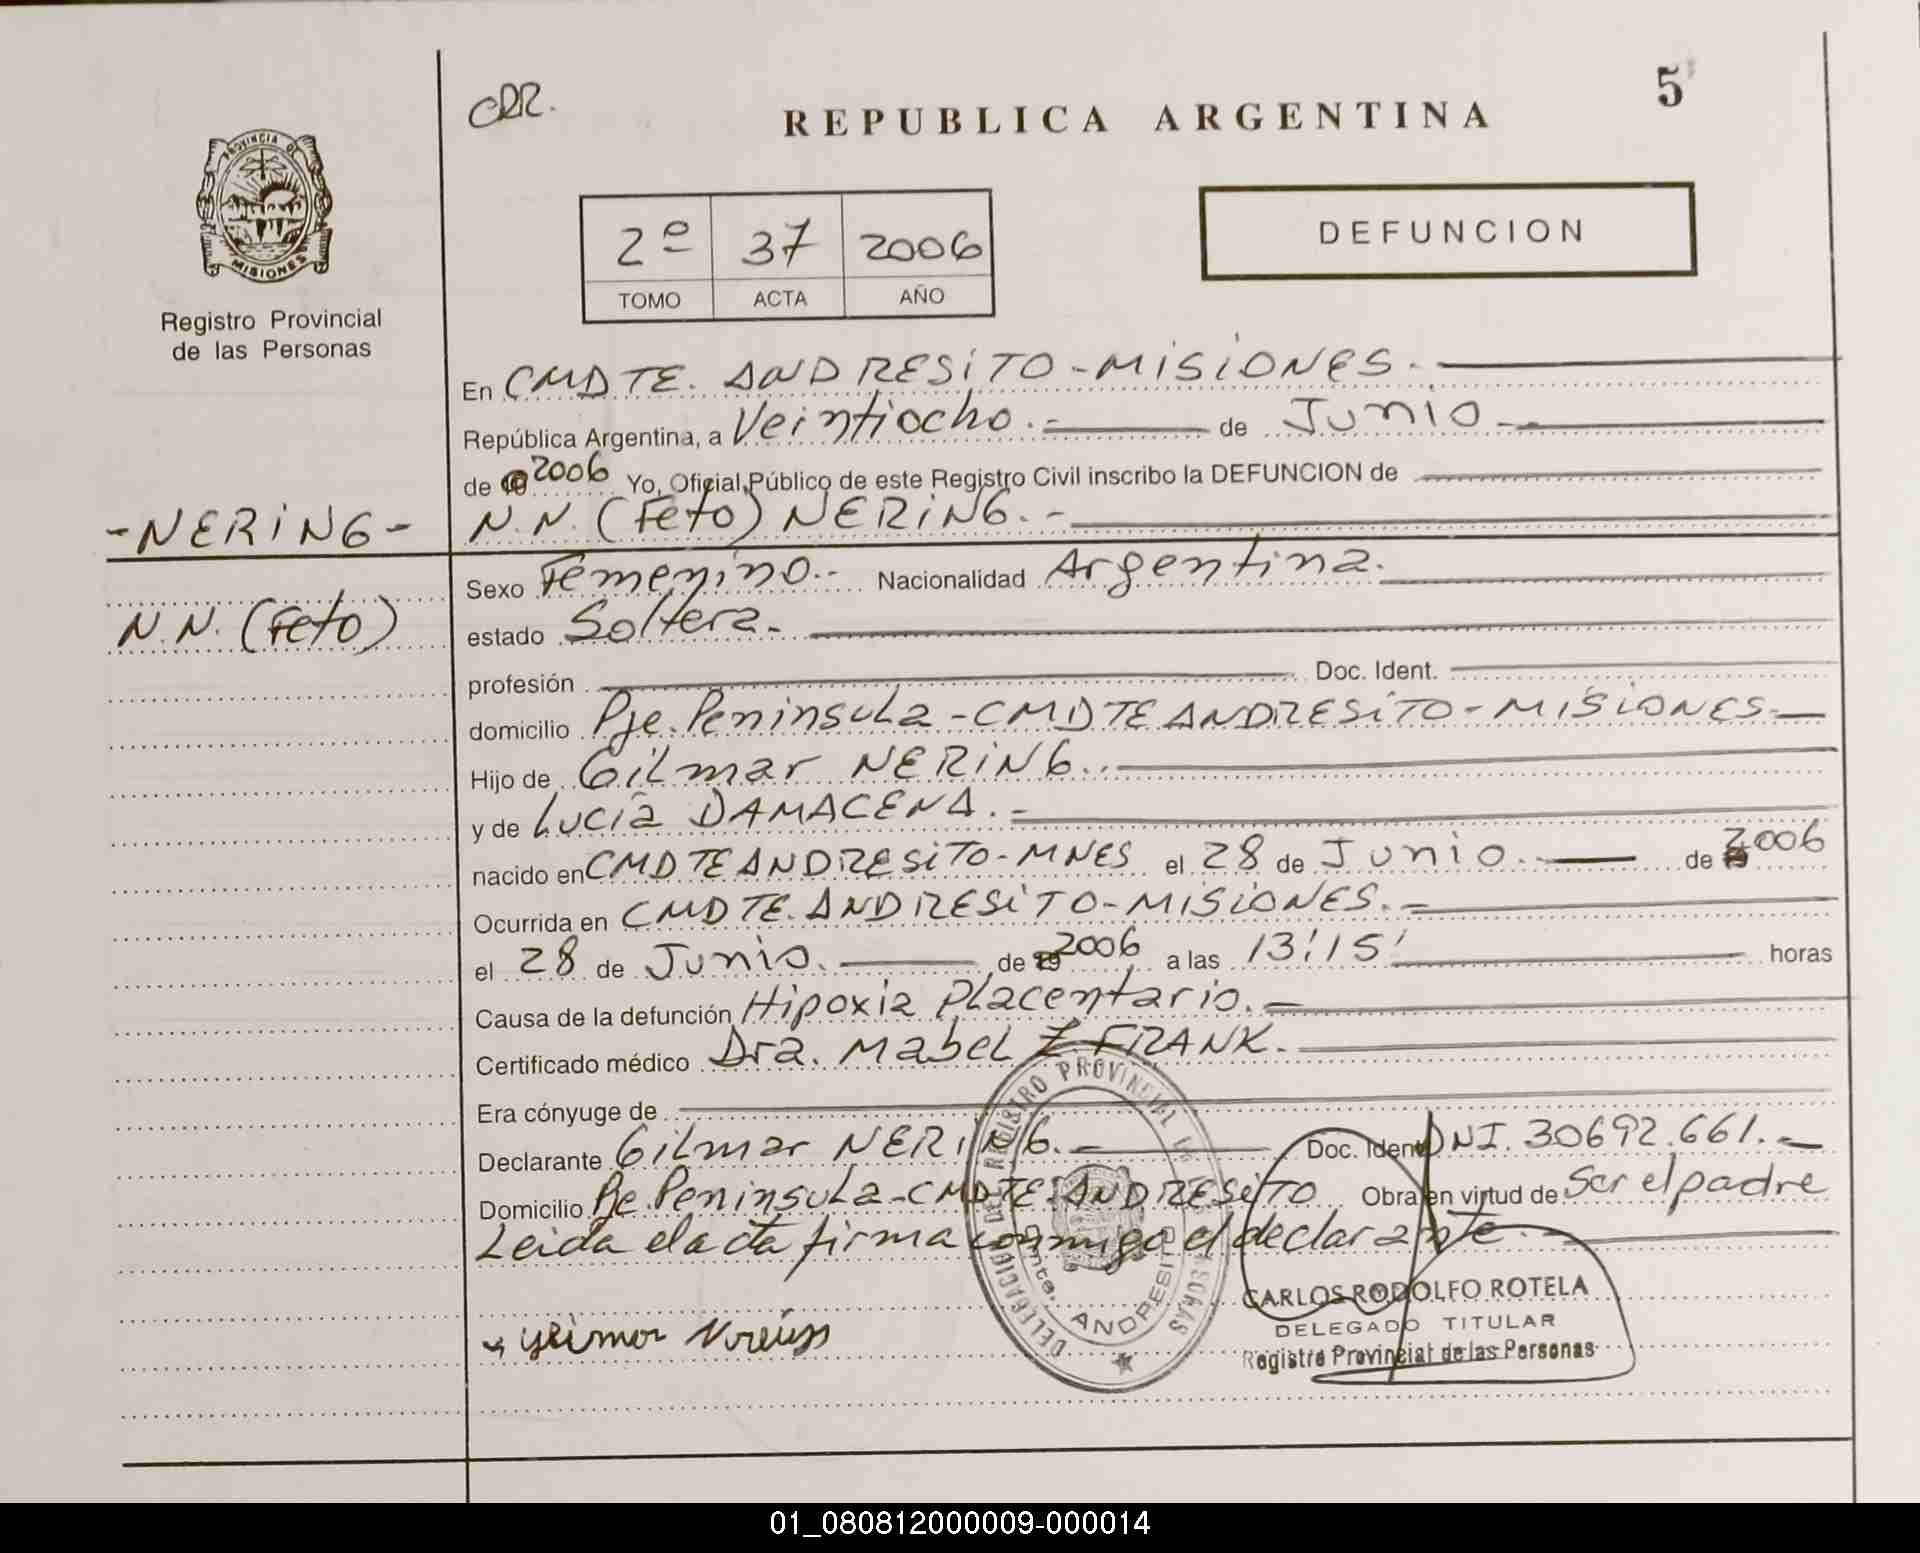 CRR.
REPUBLICA ARGENTINA
5
PROVINCIA DE
MISIONES
Registro Provincial
de las Personas
2º 37 2006
TOMO ACTA AÑO
DEFUNCION
En CMDTE. ANDRESITO-MISIONES.
República Argentina, a Veintiocho.- de Junio
de 2006 Yo, Oficial Público de este Registro Civil inscribo la DEFUNCION de
-NERING-
N.N. (Feto) NERING.-
N.N. (Feto)
Sexo Femenino.- Nacionalidad Argentina.
estado Soltera.
profesión Doc. Ident.
domicilio Pje. Peninsula-CMDTE ANDRESITO-MISIONES-
Hijo de Gilmar NERING.
y de Lucía DAMACENA.-
nacido en CMDTE ANDRESITO-MNES el 28 de Junio.- de 2006
Ocurrida en CMDTE. ANDRESITO-MISIONES.-
el 28 de Junio. de 2006 a las 13:15' horas
Causa de la defunción Hipoxia Placentario.-
Certificado médico Dra. Mabel Z. FRANK.
Era cónyuge de
Declarante Gilmar NERING. Doc. Ident DNI. 30692.661.-
Domicilio Pje. Peninsula-CMDTE. ANDRESITO Obra en virtud de Ser el padre
Leida el acta firma conmigo el declarante.
DELEGACION DEL REGISTRO PROVINCIAL DE LAS PERSONAS
Cmte. ANDRESITO
CARLOS RODOLFO ROTELA
DELEGADO TITULAR
Registro Provincial de las Personas
01_080812000009-000014